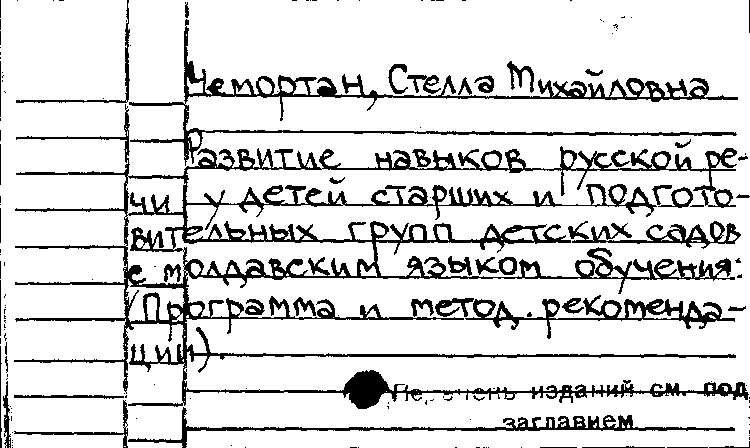 Чемортан, Стелла Михайловна
Развитие навыков русской ре-
чи у детей старших и подгото-
вительных групп детских садов
с молдавским языком обучения:
(Программа и метод. рекоменда-
ции).
Перечень изданий см. под
заглавием